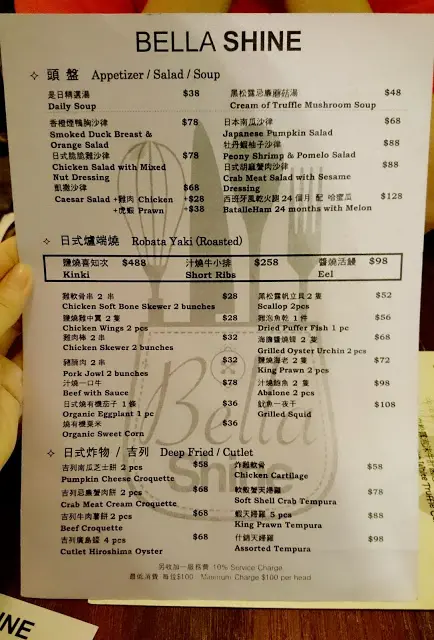 BELLA SHINE
頭 盤 Appetizer / Salad / Soup
是日精選湯 $38
Daily Soup
黑松露忌廉蘑菇湯 $48
Cream of Truffle Mushroom Soup
香橙煙鴨胸沙律 $78
Smoked Duck Breast &
Orange Salad
日式脆脆雞沙律 $78
Chicken Salad with Mixed
Nut Dressing
凱撒沙律 $68
Caesar Salad +雞肉 Chicken +$28
+虎蝦 Prawn +$38
日本南瓜沙律 $68
Japanese Pumpkin Salad
牡丹蝦柚子沙律 $88
Peony Shrimp & Pomelo Salad
日式胡麻蟹肉沙律 $88
Crab Meat Salad with Sesame
Dressing
西班牙風乾火腿 24 個月 配 哈蜜瓜 $128
BatalleHam 24 months with Melon
日式爐端燒 Robata Yaki (Roasted)
鹽燒喜知次 $488
Kinki
汁燒牛小排 $258
Short Ribs
醬燒活鰻 $98
Eel
雞軟骨串 2 串 $28
Chicken Soft Bone Skewer 2 bunches
鹽燒雞中翼 2 隻 $28
Chicken Wings 2 pcs
雞肉棒 2 串 $32
Chicken Skewer 2 bunches
豬頸肉 2 串 $32
Pork Jowl 2 bunches
汁燒一口牛 $78
Beef with Sauce
日式燒有機茄子 1 條 $36
Organic Eggplant 1 pc
燒有機粟米 $36
Organic Sweet Corn
黑松露帆立貝 2 隻 $52
Scallop 2pcs
雞泡魚乾 1 件 $56
Dried Puffer Fish 1 pc
海膽醬燒蠔 2 隻 $68
Grilled Oyster Urchin 2 pcs
鹽燒海老 2 隻 $72
King Prawn 2 pcs
汁燒鮑魚 2 隻 $98
Abalone 2 pcs
魷魚一夜干 $108
Grilled Squid
Bella
Shine
日式炸物 / 吉列 Deep Fried / Cutlet
吉列南瓜芝士餅 2 pcs $58
Pumpkin Cheese Croquette
吉列忌廉蟹肉餅 2 pcs $68
Crab Meat Cream Croquette
吉列牛肉薯餅 2 pcs $68
Beef Croquette
吉列廣島蠔 4 pcs $68
Cutlet Hiroshima Oyster
炸雞軟骨 $58
Chicken Cartilage
軟殼蟹天婦羅 $78
Soft Shell Crab Tempura
蝦天婦羅 5 pcs $88
King Prawn Tempura
什錦天婦羅 $98
Assorted Tempura
另收加一服務費 10% Service Charge
最低消費 每位$100 Minimum Charge $100 per head
INE